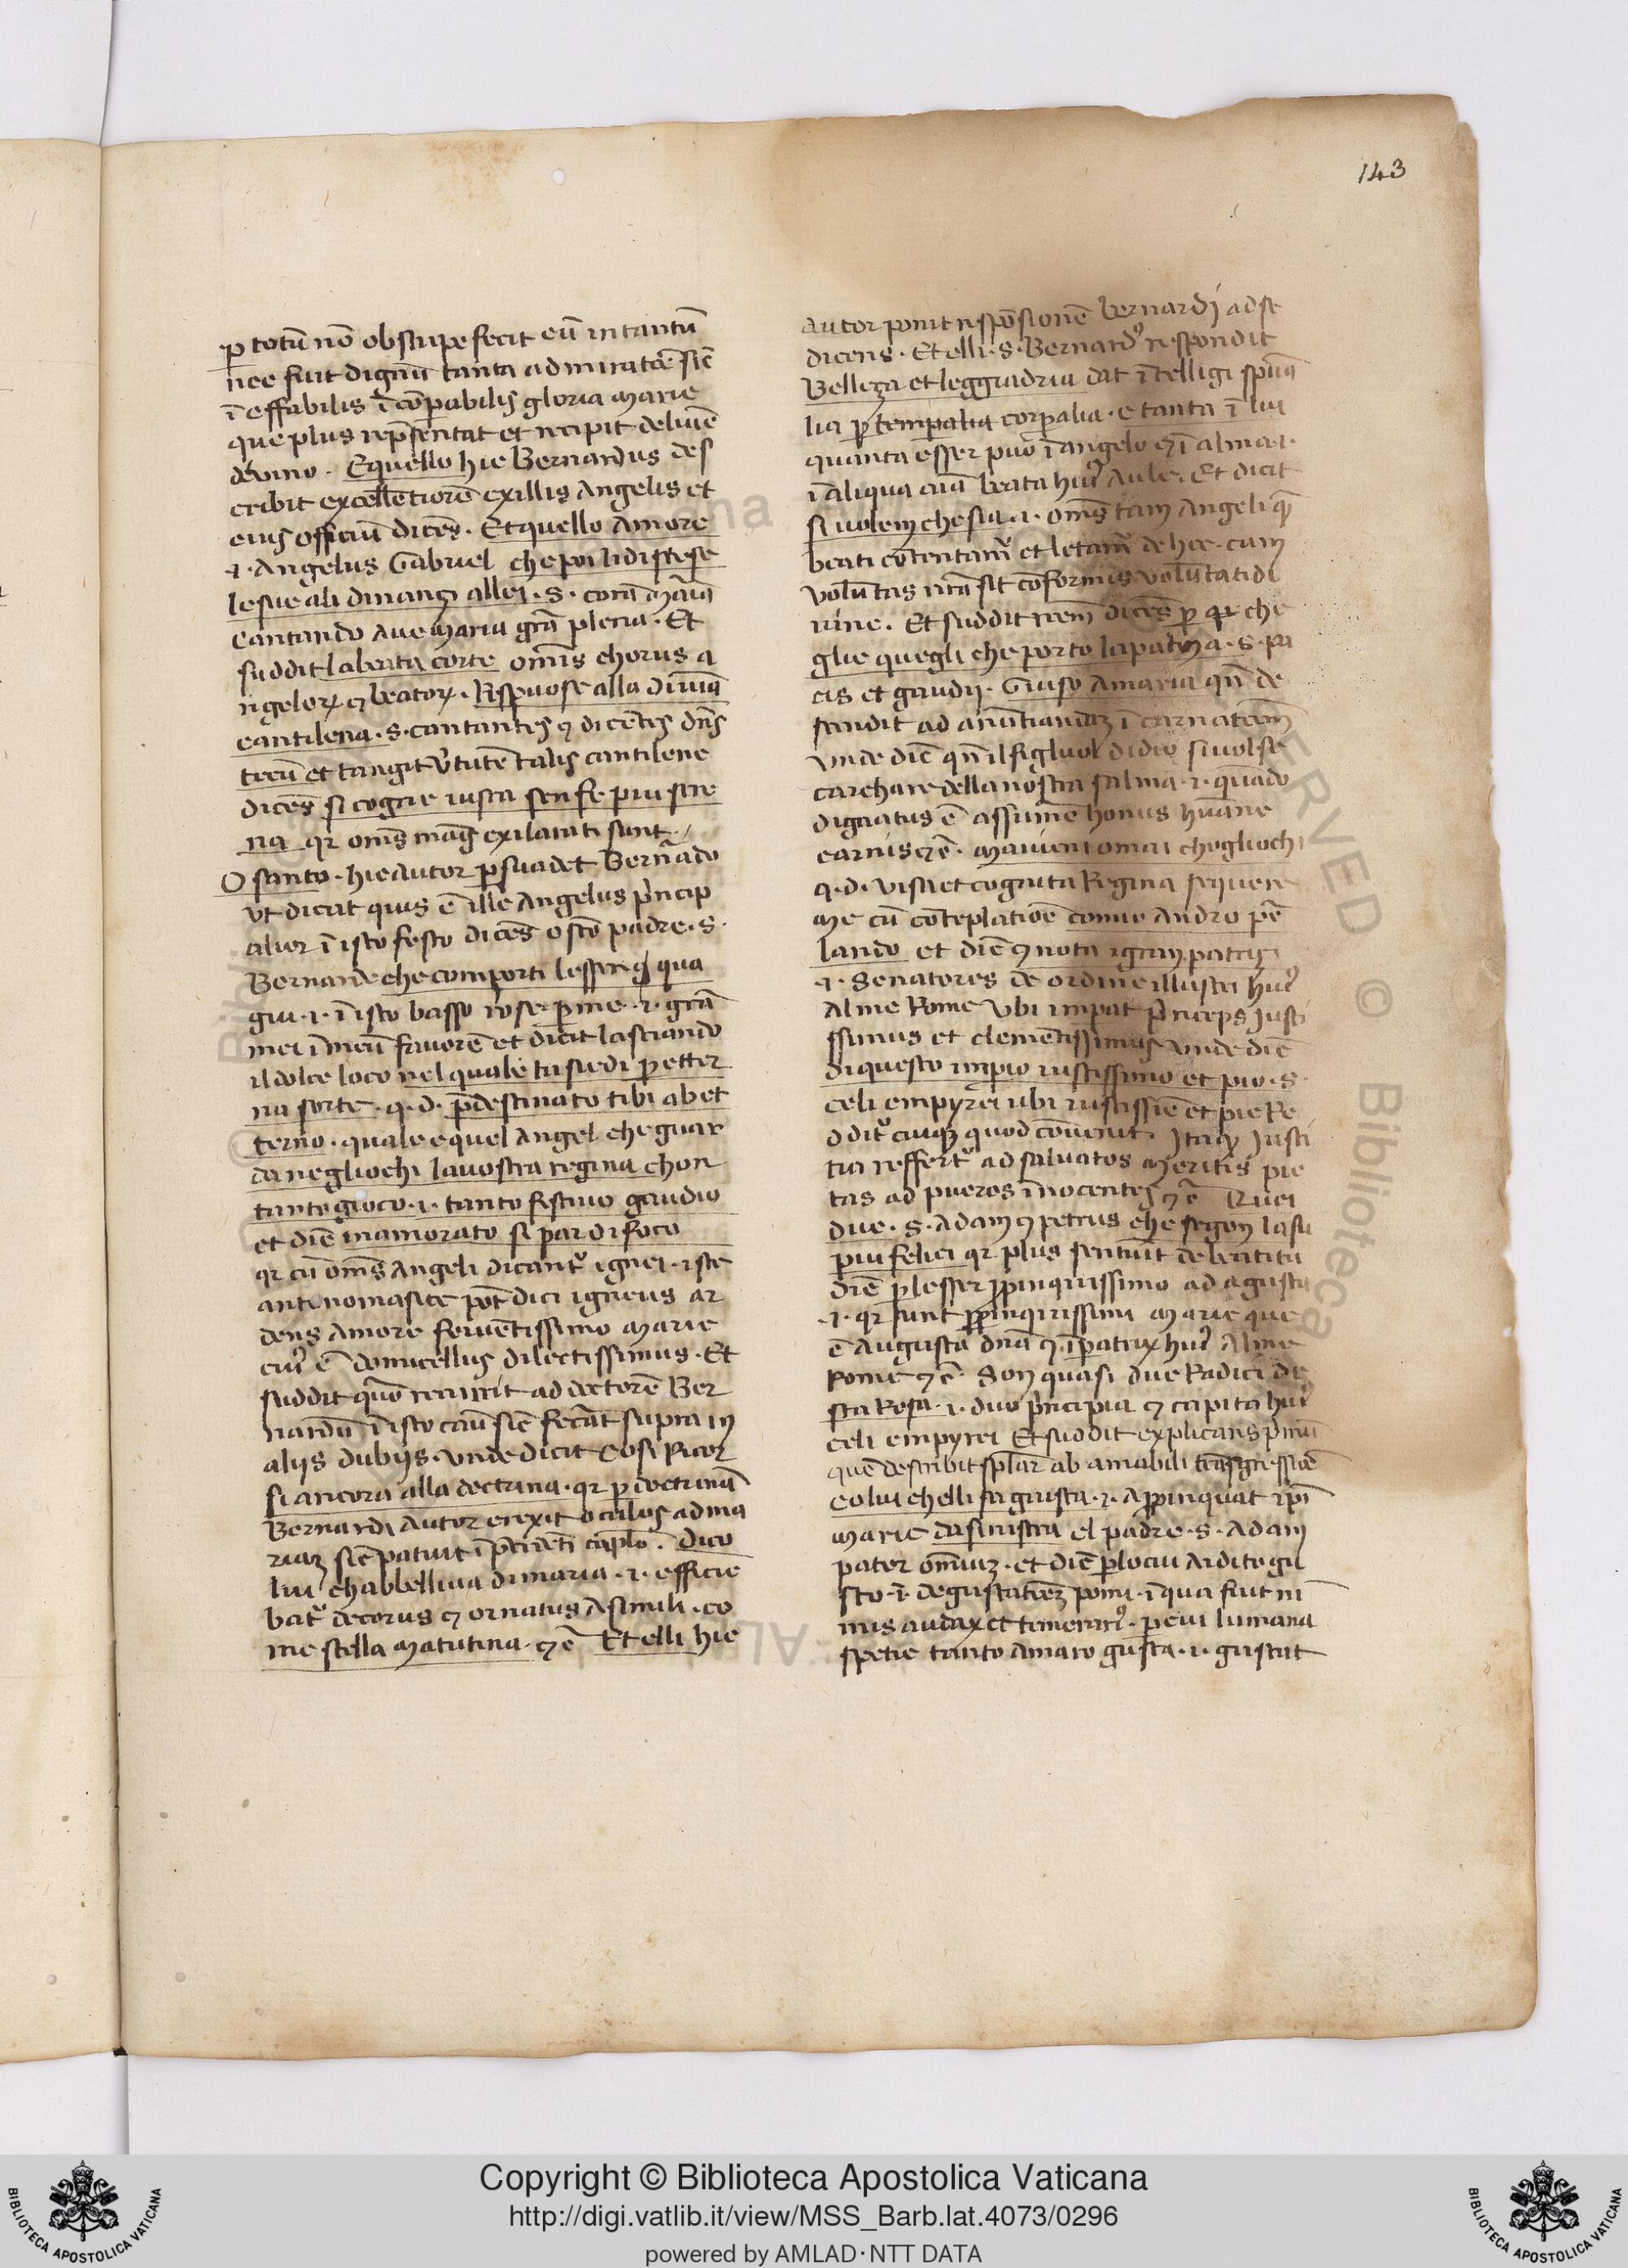 143
p totū nō obstupefecit eū in tantū
nec fuit dignū tanta admiratōe sic̄
ī effabilis ī cōpabilis gloria marie
que plus rep̄sentat et recipit de luīe
divino . Equello hic Bernardus des
cribit excellētiorē ex illis Angelis et
eius officiū dicēs . Et quello Amore
.i. Angelus Gabriel che poi li discese
le sue ali dinanzi allei . s . corā maria
Cantando ave maria grā plena . Et
suddit la beata corte om̄is chorus a
ngeloꝝ ⁊ beatoꝝ . Rispuose alla divina
cantilena . s . cantantes ⁊ dicētes dn̄s
tecū et tangit v̓tutē talis cantilene
dicēs si cogne iusta sen fe piu sere
na qr om̄s mag̃ exilarati sunt .
O santo . hic Autor p̱suadet Bern̄ado
ut dicat quis ē ille Angelus p̓ncip
alior ī isto festo dicēs o sc̄o padre . s .
Bernarde che comporti lesser q̄ qua
giu . i . ī isto basso rose p me . i . grā
mei ī meū favorē et dicit lasciando
il dolce loco nel quale tu siedi p etter
na sorte . q . d . p̄destinato tibi ab et
terno . quale e quel Angel che guar
da negliochi la nostra regina chon
tanto gioco . i . tanto festivo gaudio
et dic̄ inamorato si par di foco
qr cū om̄s Angeli dicant̓ ignei . iste
antinomasice pōt dici igneus ar
dens Amore ferventissimo marie
cui̓ ē domicellus dilectissimus . Et
suddit quō recurrit ad doctorē Ber
nardū ī isto cāu sic̄ fecāt supra in
alijs dubijs . unde dicit Cosi Ricor
si ancora alla doctrina . qr p doctrinā
Bernardi Autor erexit ocūlos ad ma
riaz sic̄ patuit ī p̄cedēti caplo . Dico
lui chabbelliva di maria . i . efficie
bat̓ decorus ⁊ ornatus A simili . co
me stella matutina . ⁊c̄ Et elli hic
Autor ponit respōsionē Bernardi ad se
dicens . Et elli . s . Bernard̓ respondit
Belleza et leggiadria dat ī telligi spūa
lia p temp̱alia corp̱alia . e tanta ī lui
quanta esser puo ī angelo ⁊ ī alma . i .
ī aliqua aīa beata hui̓ Aule . Et dicit
si volem che sia . i . om̄s tam Angeli q̄
beati cōtentam̓ et letam̓ de hoc . cum
volūtas nr̄a sit cōformis volūtati di
vine . Et suddit rem̄ dicēs p qr che
glie quegli che porto la palma . s . pa
cis et gaudij . Giuso A maria qn̄ de
scendit ad anūtiandaz ī carnatiōem
unde dic̄ qn̄ il figliuol di dio si volse
carchare della nostra salma . i . quādo
dignatus ē assūmē honus hūane
carnis ⁊c̄ . ma vieni omai chogliochi
q . d . vista et cognita Regina sequere
me cū cōteplatiōe como andro p̄
lando et dic̄ ⁊ nota i gran patrizi
.i. Senatores de ordine illustri hui̓
Alme Rome ubi imp̱at p̓nceps Justi
ssimus et clemētissimus unde dic̄
di questo imp̱io iustissimo et pio . s .
celi empyrei ubi iustissīe et pie Re
ddit̓ cuiqꝫ quod cōvenit . Itaqꝫ Justi
tia reffert̓ ad salvatos meritis pie
tas ad pueros inocentes ⁊c̄ Quei
due . s . Adam ⁊ petrus che segon lasu
piu felici qr plus sentiūt de beatitu
dīe p lesser p̱pinquissimo ad agusta
. i . qr sunt p̱pinquissimi marie que
ē Augusta dn̄a ⁊ īp̱atrix hui̓ Alme
Rome ⁊c̄ . Son quasi due Radici de
sta Rosa . i . duo p̓ncipia ⁊ capita hui̓
celi empyrei Et suddit explicans p̓mū
quē describit splār ab amabili trāsgressiōe
colui chelli sagiusta . i . App̱inquat ip̄i
marie da sinistra el padre . s . Adam
pater om̄iuz . et dic̄ p lo cui Ardito gu
sto . i . degustatiōez pomi . ī qua fuit ni
mis audax et temerari̓ . p cui lumana
spetie tanto Amaro gusta . i . gustat
Copyright © Biblioteca Apostolica Vaticana
http://digi.vatlib.it/view/MSS_Barb.lat.4073/0296
powered by AMLAD·NTT DATA
BIBLIOTECA APOSTOLICA VATICANA
BIBLIOTECA APOSTOLICA VATICANA